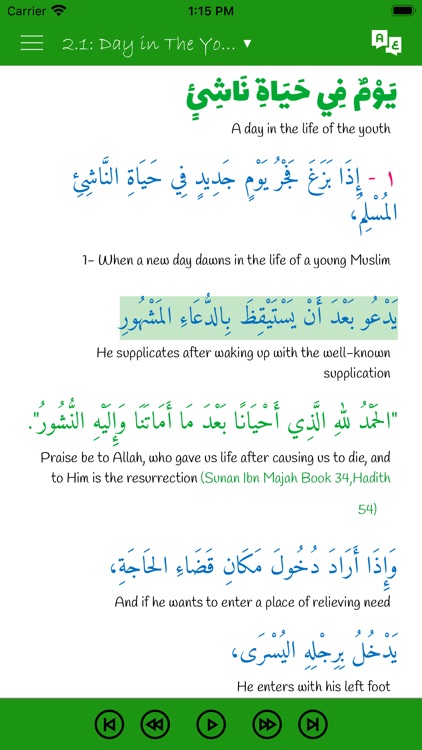 Carrier 1:15 PM
2.1: Day in The Yo... ▼
A ع
يَوْمٌ فِي حَيَاةِ نَاشِئٍ
A day in the life of the youth
١ - إِذَا بَزَغَ فَجْرُ يَوْمٍ جَدِيدٍ فِي حَيَاةِ النَّاشِئِ
المُسْلِمُ،
1- When a new day dawns in the life of a young Muslim
يَدْعُو بَعْدَ أَنْ يَسْتَيْقِظَ بِالدُّعَاءِ المَشْهُورِ
He supplicates after waking up with the well-known
supplication
"الحَمْدُ للهِ الَّذِي أَحْيَانًا بَعْدَ مَا أَمَاتَنَا وَإِلَيْهِ النُّشُورُ".
Praise be to Allah, who gave us life after causing us to die, and
to Him is the resurrection (Sunan Ibn Majah Book 34,Hadith
54)
وَإِذَا أَرَادَ دُخُولَ مَكَانِ قَضَاءِ الحَاجَةِ،
And if he wants to enter a place of relieving need
يَدْخُلُ بِرِجْلِهِ اليُسْرَى،
He enters with his left foot